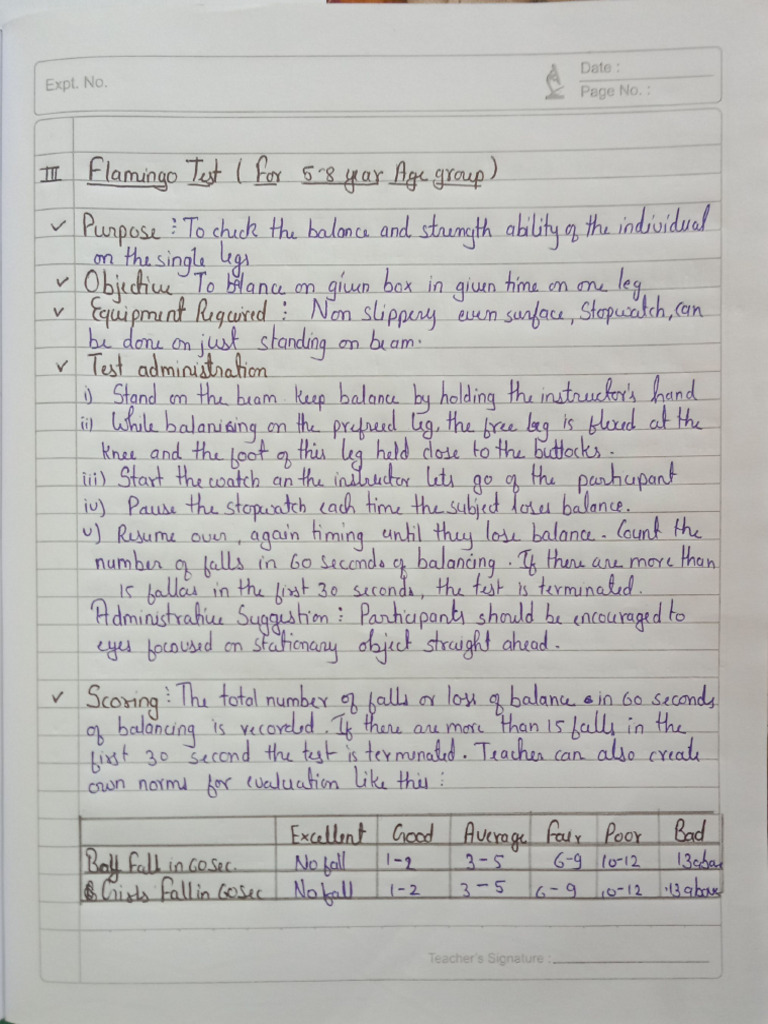 Expt. No.
Date :
Page No. :
III Flamingo Test ( For 5-8 year Age group)
✓ Purpose : To check the balance and strength ability of the individual
on the single legs
✓ Objective To blance on given box in given time on one leg
✓ Equipment Required : Non slippery even surface, Stopwatch, can
be done on just standing on beam.
✓ Test administration
i) Stand on the beam keep balance by holding the instructor's hand
ii) While balancing on the prefreed leg, the free leg is flexed at the
knee and the foot of this leg held close to the buttocks.
iii) Start the watch an the instructor lets go of the participant
iv) Pause the stopwatch each time the subject loses balance.
v) Resume over, again timing until they lose balance. Count the
number of falls in 60 seconds of balancing. If there are more than
15 fallas in the first 30 seconds, the test is terminated.
Administrative Suggestion : Participants should be encouraged to
eyes focoused on stationary object straight ahead.
✓ Scoring : The total number of falls or loss of balance in 60 seconds
of balancing is recorded. If there are more than 15 falls in the
first 30 second the test is termunated. Teacher can also create
own norms for evaluation like this :
Excellent Good Average Fair Poor Bad
Boy Fall in 60 sec. No fall 1-2 3-5 6-9 10-12 13 abov
Girls Fall in 60 sec No fall 1-2 3-5 6-9 10-12 13 above
Teacher's Signature :